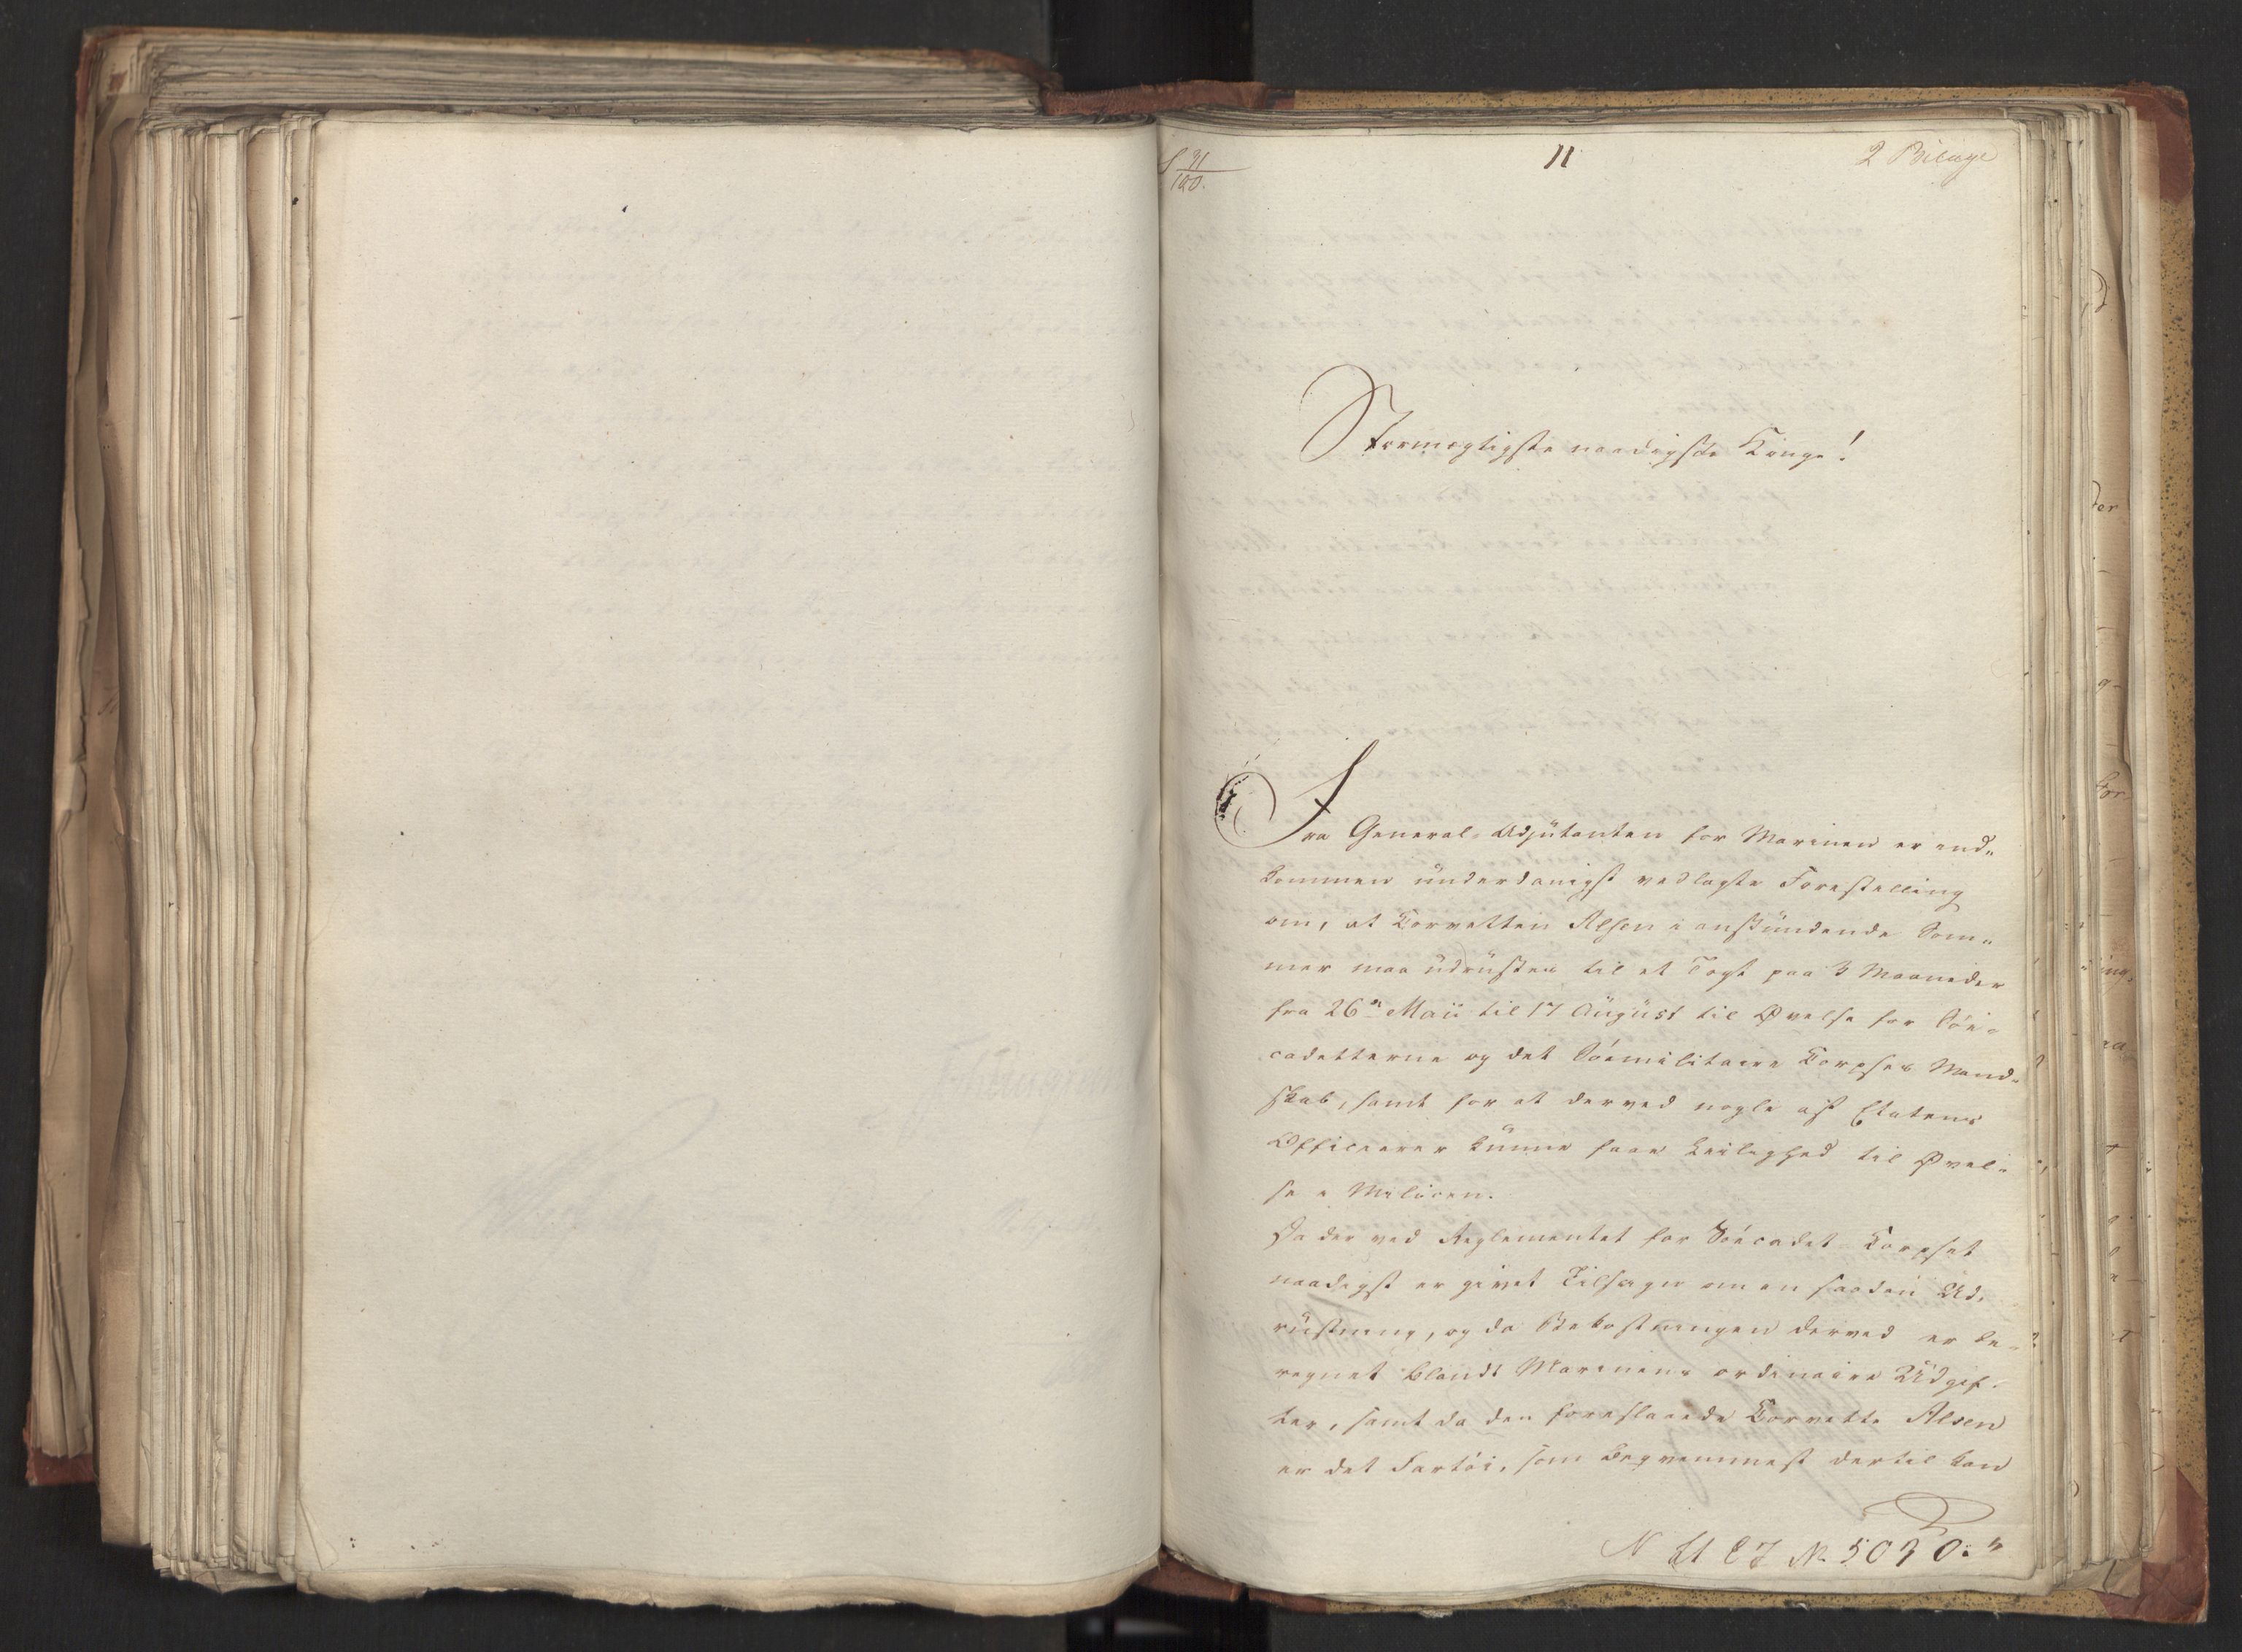 S 31/100.
11
2 Bilage
Stormægtigste naadigste Konge!
Fra General-Adjütanten for Marinen er ind-
kommen ünderdanigst vedlagte Forestilling
om, at Corvetten Alsen i anstündende Som-
mer maa üdrüstes til et Togt paa 3 Maaneder
fra 26de Maii til 17 Aügüst til Øvelse for Söe-
cadetterne og det Söemilitaire Corpses Mand-
skab, samt for at derved nogle af Etatens
Officierer künne faae Leilighed til Øvel-
se i Metieren.
Da der ved Reglementet for Söecadet Corpset
naadigst er givet Tilsagn om en saadan Ud-
rüstning, og da Bekostningen derved er be-
regnet blandt Marinens ordinaire Udgif-
ter, samt da den foreslaaede Corvette Alsen
er det Fartöi, som beqvemmest dertil kan
No 5030.